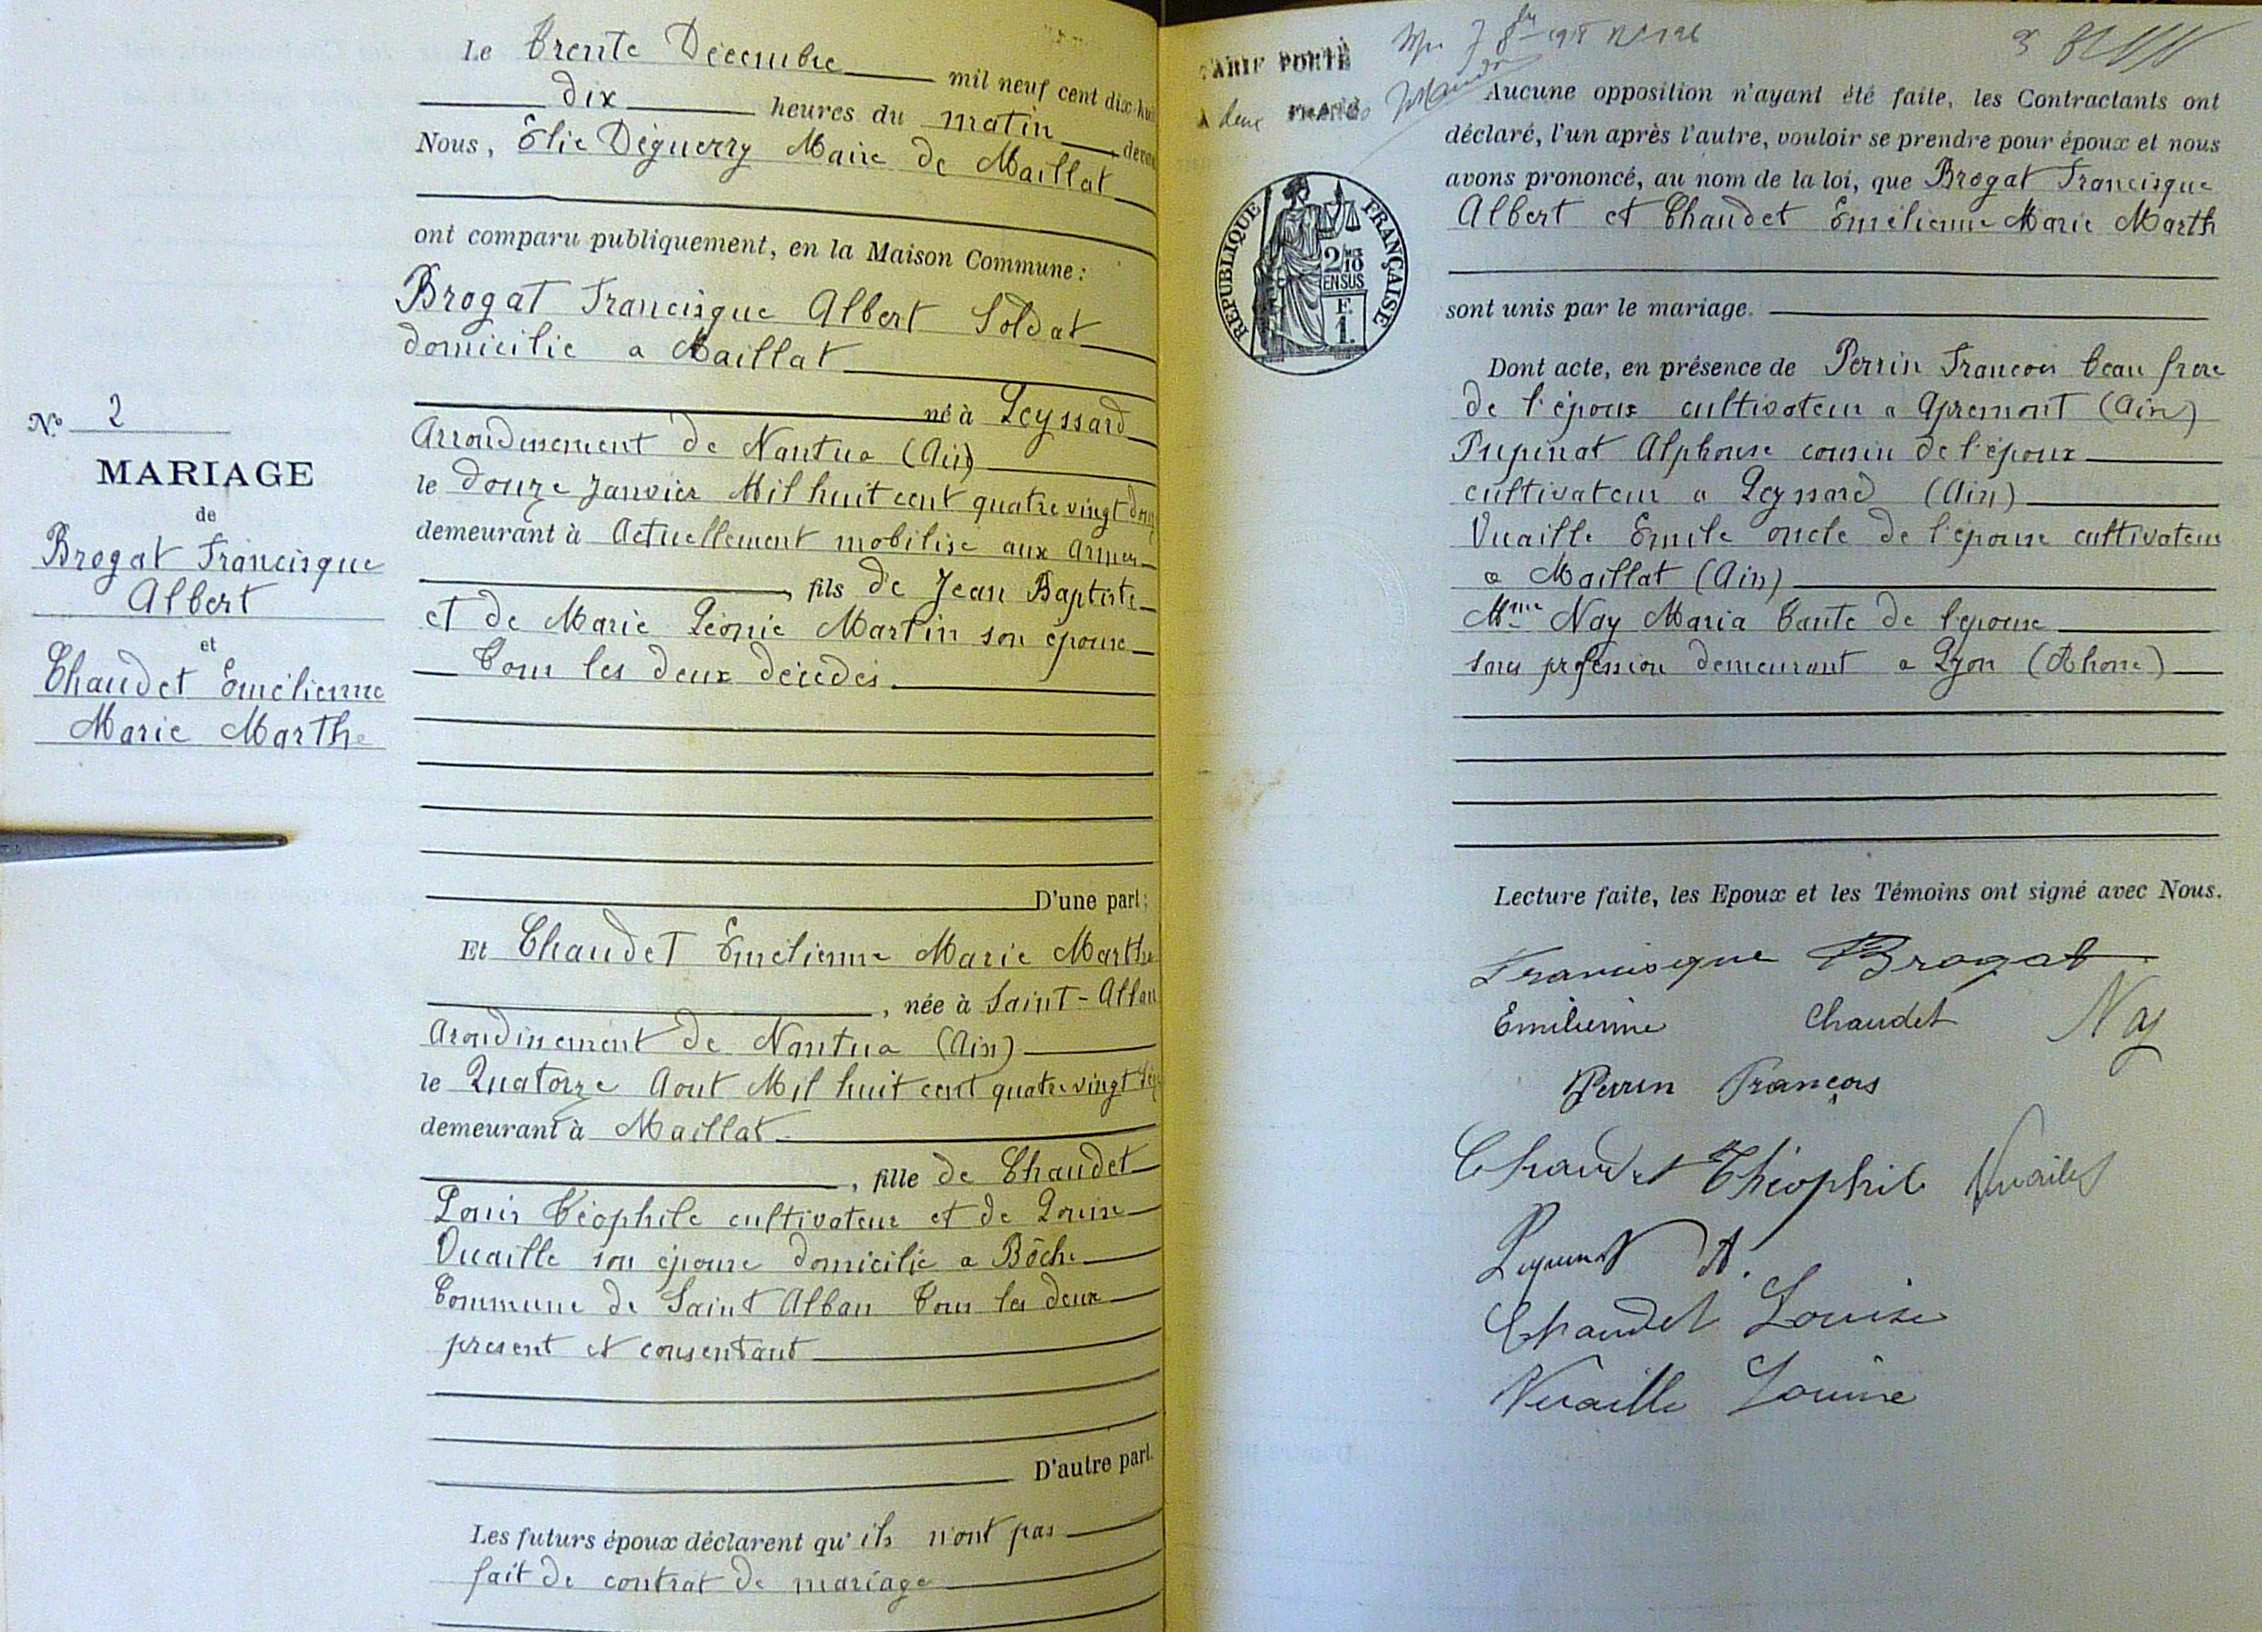 Le Trente Décembre mil neuf cent dix-hui
dix heures du matin, devan
Nous, Elie Déguerry Maire de Maillat
ont comparu publiquement, en la Maison Commune:
Brogat Francisque Albert Soldat
domicilié a Maillat
né à Leyssard
Arrondissement de Nantua (Ain)
le douze Janvier Mil huit cent quatre vingt douz
demeurant à Actuellement mobilisé aux Armées
, fils de Jean Baptiste
et de Marie Léonie Martin son épouse
Tous les deux décédés
No 2
MARIAGE
de
Brogat Francisque
Albert
et
Chaudet Emélienne
Marie Marthe
D'une part;
Et Chaudet Emélienne Marie Marthe
, née à Saint-Alban
Arondissement de Nantua (Ain)
le Quatorze Aout Mil huit cent quatre vingt
demeurant à Maillat
, fille de Chaudet
Louis Téophile cultivateur et de Louise
Vuaille son épouse domicilié a Bôche
Commune de Saint Alban Tous les deux
présent et consentant
D'autre part.
Les futurs époux déclarent qu'ils n'ont pas
fait de contrat de mariage
TARIF PORTÉ
A deux FRANCS
RÉPUBLIQUE FRANÇAISE
2/10
EN SUS
F.
1.
Aucune opposition n'ayant été faite, les Contractants ont
déclaré, l'un après l'autre, vouloir se prendre pour époux et nous
avons prononcé, au nom de la loi, que Brogat Francisque
Albert et Chaudet Emélienne Marie Marth
sont unis par le mariage.
Dont acte, en présence de Perrin Francois beau frere
de l'époux cultivateur a Apremont (Ain)
Pupinat Alphonse cousin de l'époux
cultivateur a Leyssard (Ain)
Vuaille Emile oncle de l'épouse cultivateur
a Maillat (Ain)
Mme Nay Maria Tante de l'epouse
sans profession demeurant a Lyon (Rhone)
Lecture faite, les Epoux et les Témoins ont signé avec Nous.
Francisque Brogat
Emilienne Chaudet Nay
Perrin François
Chaudet Théophile Vuaille
A.
Chaudet Louise
Vuaille Louise